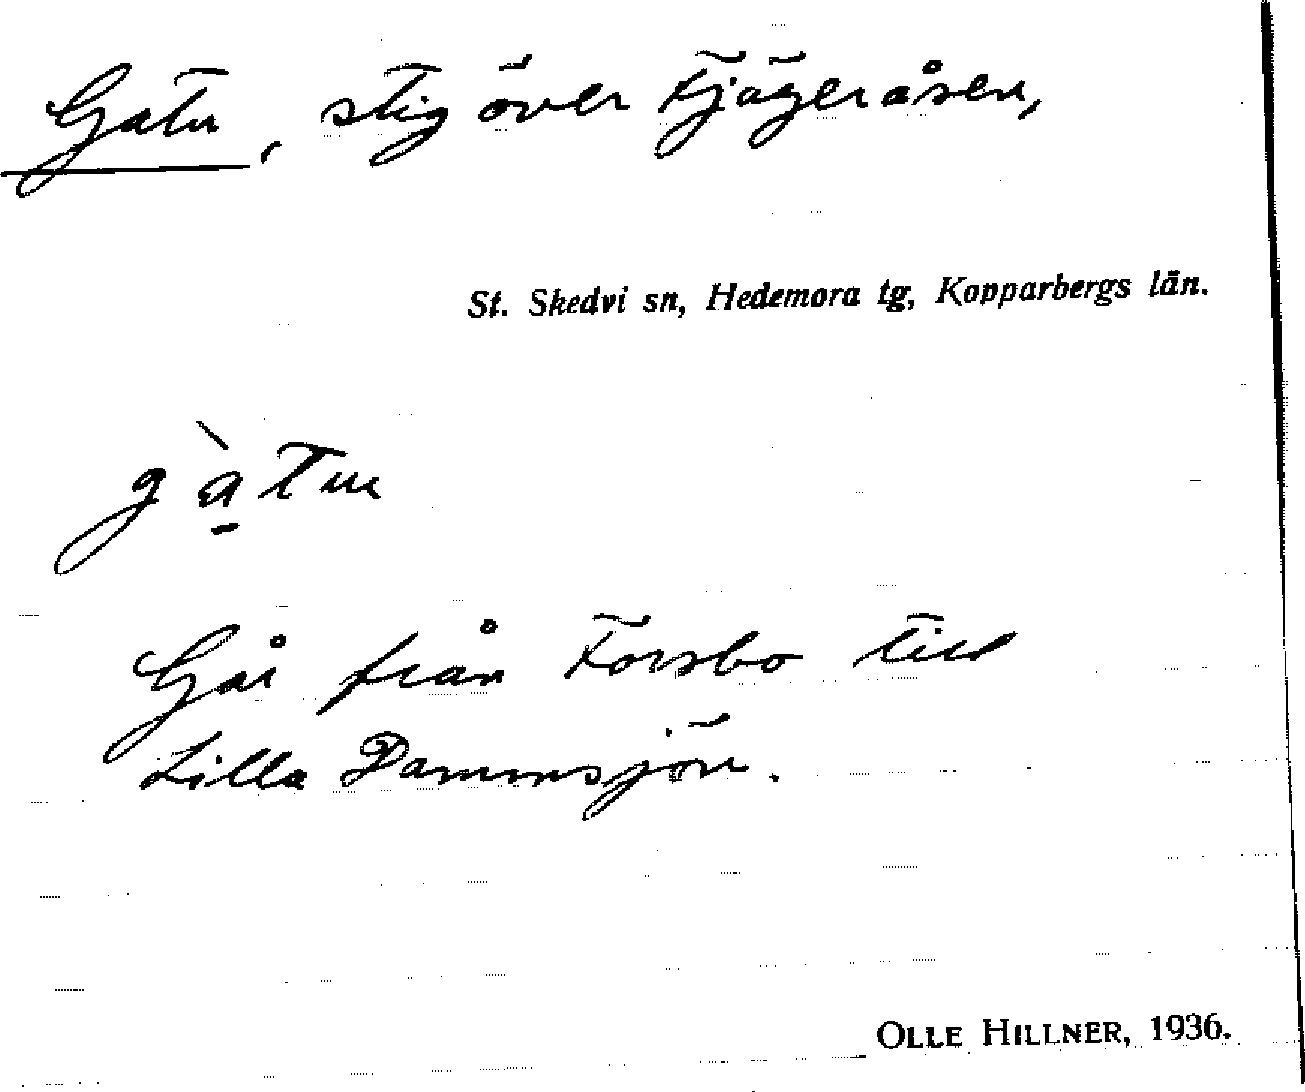 Gatu, stig över Fjägeråsen,
St. Skedvi sn, Hedemora tg, Kopparbergs län.
gà̱tu
Går från Forsbo till
Lilla Dammsjön.
OLLE HILLNER, 1936.